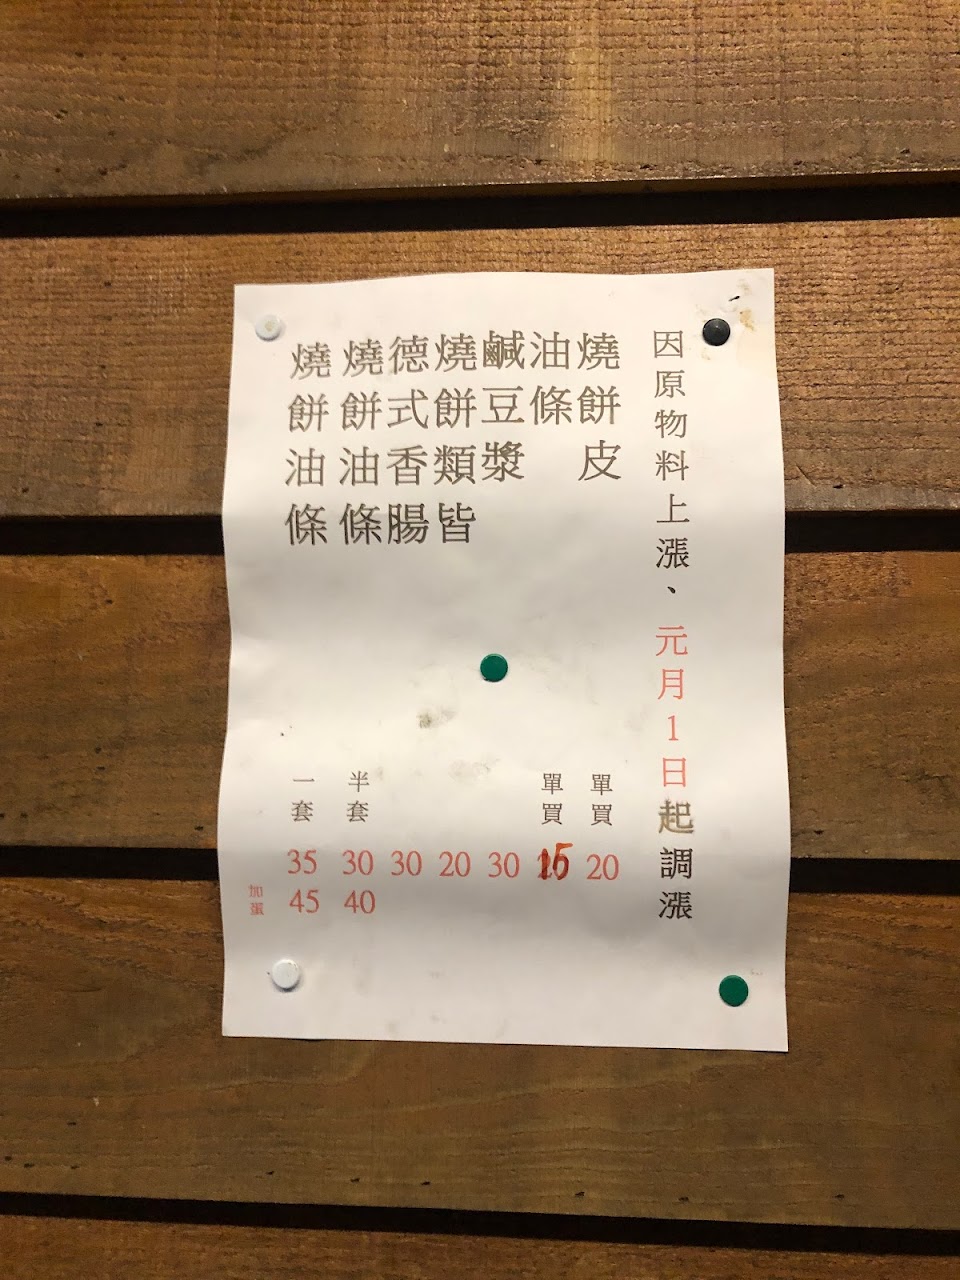 因原物料上漲、元月1日起調漲
燒餅皮 單買 20
油條 單買 15
鹹豆漿 30
燒餅類皆 20
德式香腸 30
燒餅油條 半套 30 40
燒餅油條 一套 35 45
加蛋